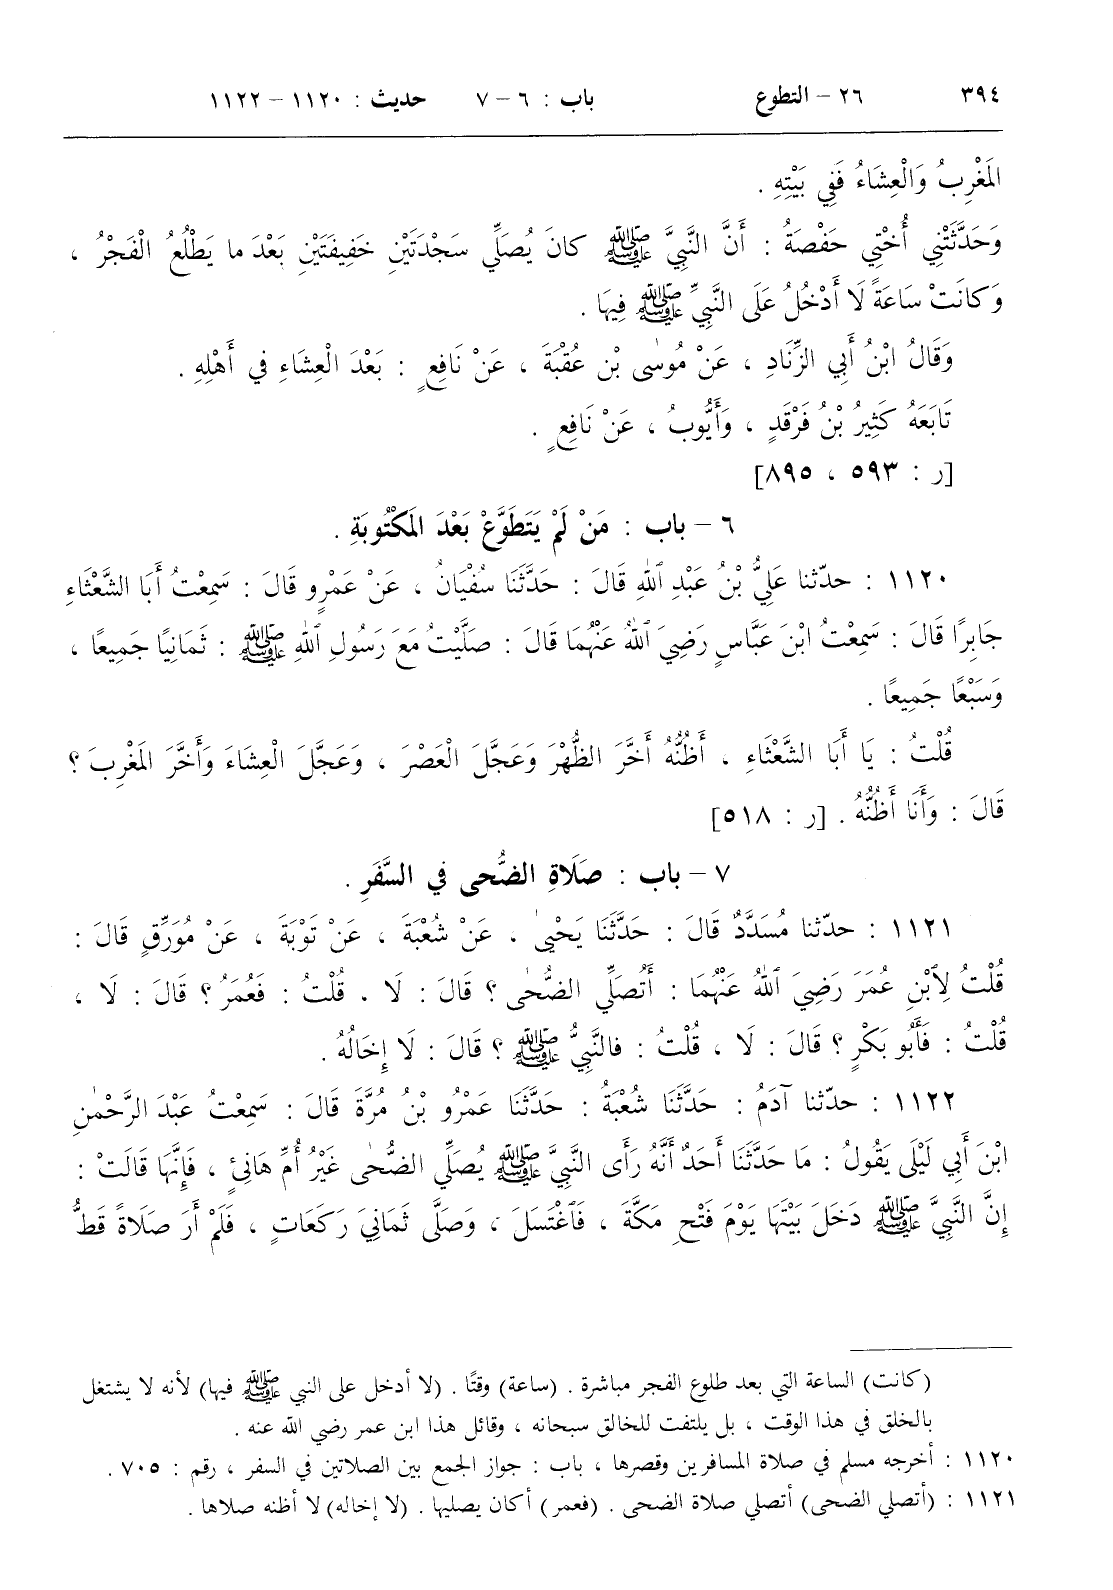 ٣٩٤ ٢٦ – التطوع باب : ٦ – ٧ حديث : ١١٢٠ – ١١٢٢
المَغْرِبُ وَالْعِشَاءُ فَفِي بَيْتِهِ .
وَحَدَّثَتْنِي أُخْتِي حَفْصَةُ : أَنَّ النَّبِيَّ ﷺ كانَ يُصَلِّي سَجْدَتَيْنِ خَفِيفَتَيْنِ بَعْدَ ما يَطْلُعُ الْفَجْرُ ،
وَكانَتْ سَاعَةً لَا أَدْخُلُ عَلَى النَّبِيِّ ﷺ فِيهَا .
وَقَالَ ابْنُ أَبِي الزِّنَادِ ، عَنْ مُوسٰى بْنِ عُقْبَةَ ، عَنْ نَافِعٍ : بَعْدَ الْعِشَاءِ في أَهْلِهِ .
تَابَعَهُ كَثِيرُ بْنُ فَرْقَدٍ ، وَأَيُّوبُ ، عَنْ نَافِعٍ .
[ر : ٥٩٣ ، ٨٩٥]
٦ – باب : مَنْ لَمْ يَتَطَوَّعْ بَعْدَ المَكْتُوبَةِ .
١١٢٠ : حدّثنا عَلِيُّ بْنُ عَبْدِ ٱللهِ قَالَ : حَدَّثَنَا سُفْيَانُ ، عَنْ عَمْرٍو قَالَ : سَمِعْتُ أَبَا الشَّعْثَاءِ
جَابِرًا قَالَ : سَمِعْتُ ابْنَ عَبَّاسٍ رَضِيَ ٱللهُ عَنْهُمَا قَالَ : صَلَّيْتُ مَعَ رَسُولِ ٱللهِ ﷺ : ثَمَانِيًا جَمِيعًا ،
وَسَبْعًا جَمِيعًا .
قُلْتُ : يَا أَبَا الشَّعْثَاءِ ، أَظُنُّهُ أَخَّرَ الظُّهْرَ وَعَجَّلَ الْعَصْرَ ، وَعَجَّلَ الْعِشَاءَ وَأَخَّرَ المَغْرِبَ ؟
قَالَ : وَأَنَا أَظُنُّهُ . [ر : ٥١٨]
٧ – باب : صَلَاةِ الضُّحى في السَّفَرِ .
١١٢١ : حدّثنا مُسَدَّدٌ قَالَ : حَدَّثَنَا يَحْيىٰ . عَنْ شُعْبَةَ ، عَنْ تَوْبَةَ ، عَنْ مُوَرِّقٍ قَالَ :
قُلْتُ لِٱبْنِ عُمَرَ رَضِيَ ٱللهُ عَنْهُمَا : أَتُصَلِّي الضُّحٰى ؟ قَالَ : لَا . قُلْتُ : فَعُمَرُ ؟ قَالَ : لَا ،
قُلْتُ : فَأَبُو بَكْرٍ ؟ قَالَ : لَا ، قُلْتُ : فالنَّبِيُّ ﷺ ؟ قَالَ : لَا إِخَالُهُ .
١١٢٢ : حدّثنا آدَمُ : حَدَّثَنَا شُعْبَةُ : حَدَّثَنَا عَمْرُو بْنُ مُرَّةَ قَالَ : سَمِعْتُ عَبْدَ الرَّحْمٰنِ
ابْنَ أَبِي لَيْلَى يَقُولُ : مَا حَدَّثَنَا أَحَدٌ أَنَّهُ رَأَى النَّبِيَّ ﷺ يُصَلِّي الضُّحٰى غَيْرُ أُمِّ هَانِئٍ ، فَإِنَّهَا قَالَتْ :
إِنَّ النَّبِيَّ ﷺ دَخَلَ بَيْتَهَا يَوْمَ فَتْحِ مَكَّةَ ، فَٱغْتَسَلَ ، وَصَلَّى ثَمَانِيَ رَكَعَاتٍ ، فَلَمْ أَرَ صَلَاةً قَطُّ
(كانت) الساعة التي بعد طلوع الفجر مباشرة . (ساعة) وقتًا . (لا أدخل على النبي ﷺ فيها) لأنه لا يشتغل
بالخلق في هذا الوقت ، بل يلتفت للخالق سبحانه ، وقائل هذا ابن عمر رضي الله عنه .
١١٢٠ : أخرجه مسلم في صلاة المسافرين وقصرها ، باب : جواز الجمع بين الصلاتين في السفر ، رقم : ٧٠٥ .
١١٢١ : (أتصلي الضحى) أتصلي صلاة الضحى . (فعمر) أكان يصليها . (لا إخاله) لا أظنه صلاها .